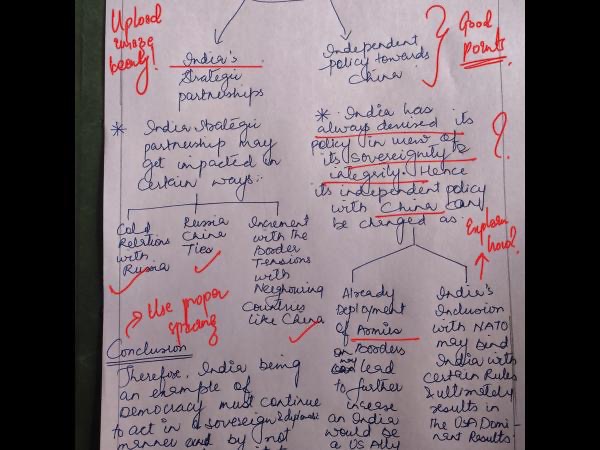 Upload
image
beauty!
Good
points.
India's
Strategic
partnerships
Independent
policy towards
China
* India Strategic
partnership may
get impacted in
certain ways:
* India has
always devised its
policy in view of
its sovereignity &
integrity. Hence
its independent policy
with China can
be changed as:
?
Cold
Relations
with
Russia
Russia
China
Ties
Increment
with the
Border
Tensions
with
Neighouring
Countries
like China
Explain
how?
Use proper
spacing
Already
Deployment
of Armies
on Borders
may lead
to further
increase
an India
would be
a US Ally
India's
Inclusion
with NATO
may bind
India with
certain Rules
& ultimately
results in
the USA Domi-
nent Results.
Conclusion
Therefore, India being
an example of
Democracy must continue
to act in a sovereign & diplomatic
manner and by not